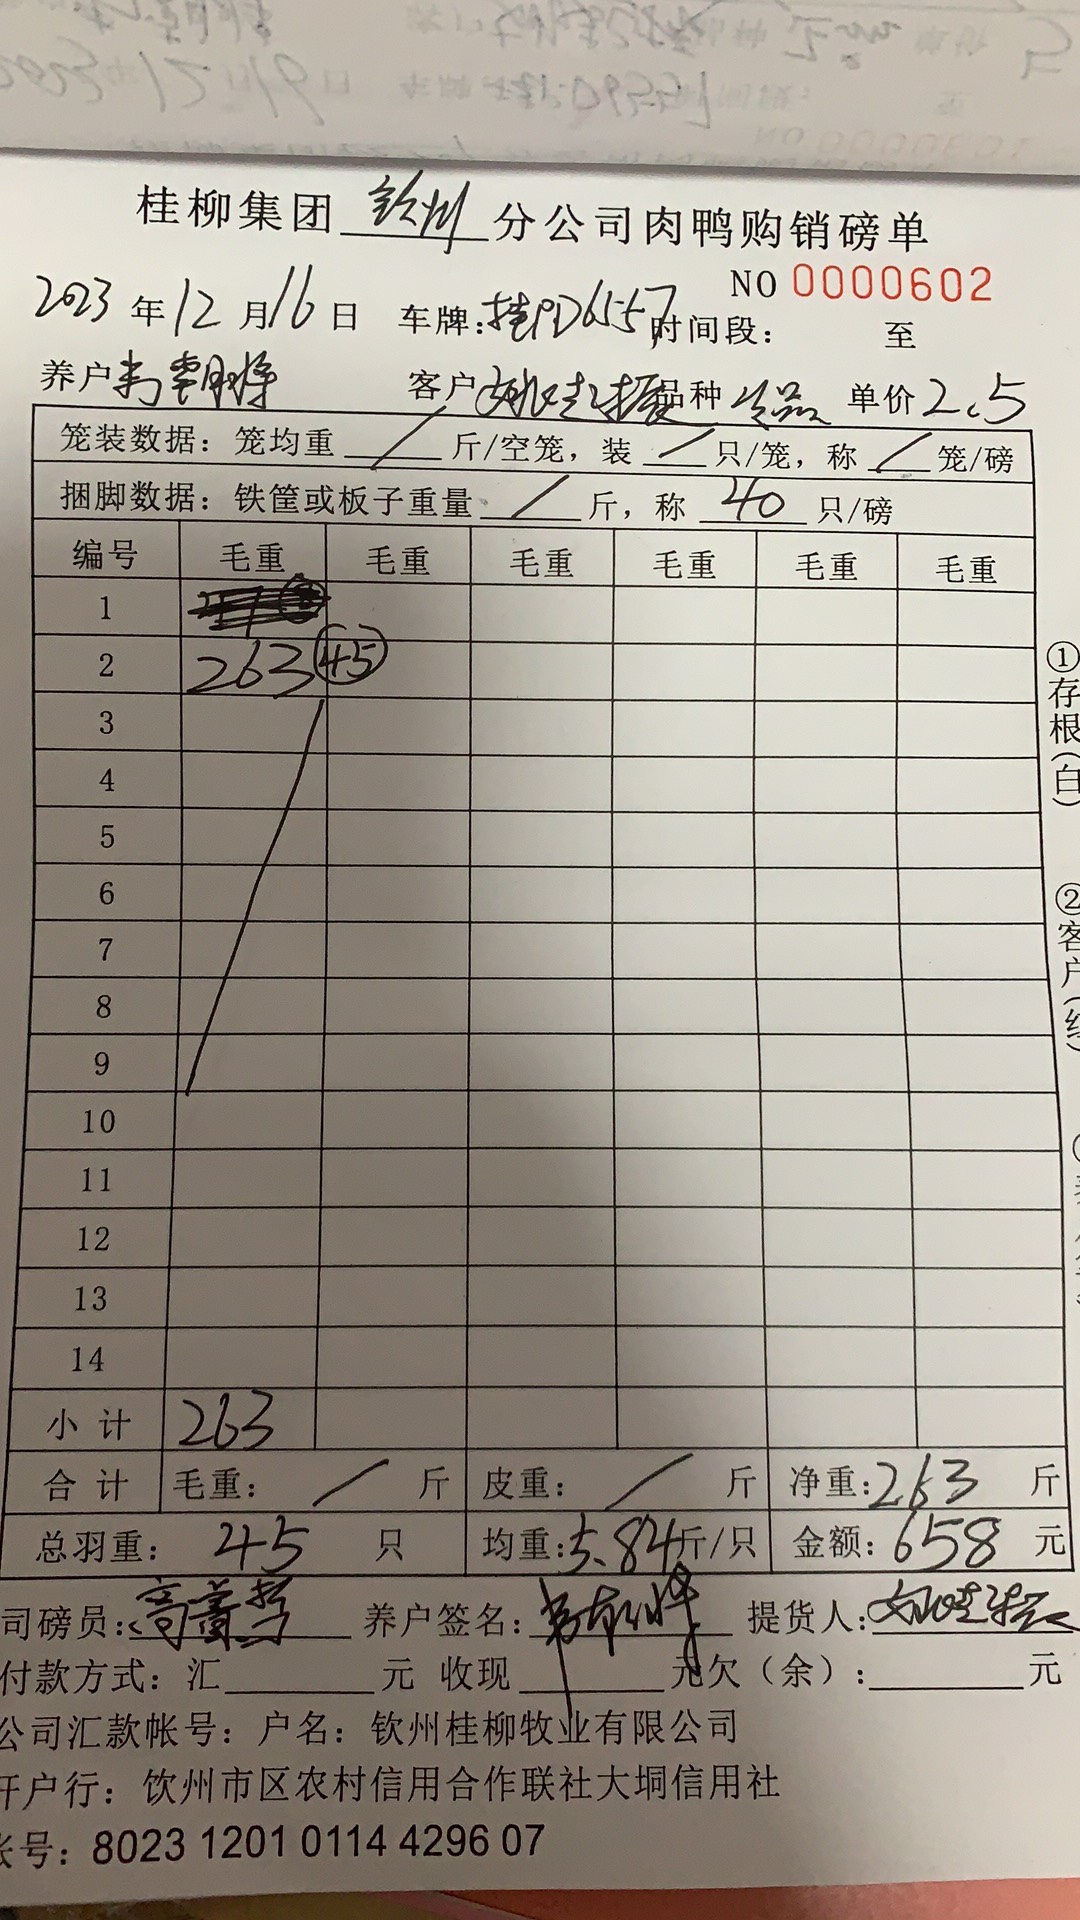 桂柳集团钦州分公司肉鸭购销磅单
NO 0000602
2023年12月16日 车牌:桂PD6557 时间段: 至
养户 客户 品种 单价2.5
笼装数据：笼均重 / 斤/空笼，装 / 只/笼，称 / 笼/磅
捆脚数据：铁筐或板子重量 / 斤，称 40 只/磅
编号 毛重 毛重 毛重 毛重 毛重 毛重
1
2 263 45
3
4
5
6
7
8
9
10
11
12
13
14
小计 263
合计 毛重： / 斤 皮重： / 斤 净重:263 斤
总羽重： 45 只 均重:5.84斤/只 金额:658 元
司磅员: 养户签名: 提货人:
付款方式：汇 元 收现 元欠（余）: 元
公司汇款帐号：户名：钦州桂柳牧业有限公司
开户行：钦州市区农村信用合作联社大垌信用社
帐号：8023 1201 0114 4296 07
①存根(白)
②客户(红)